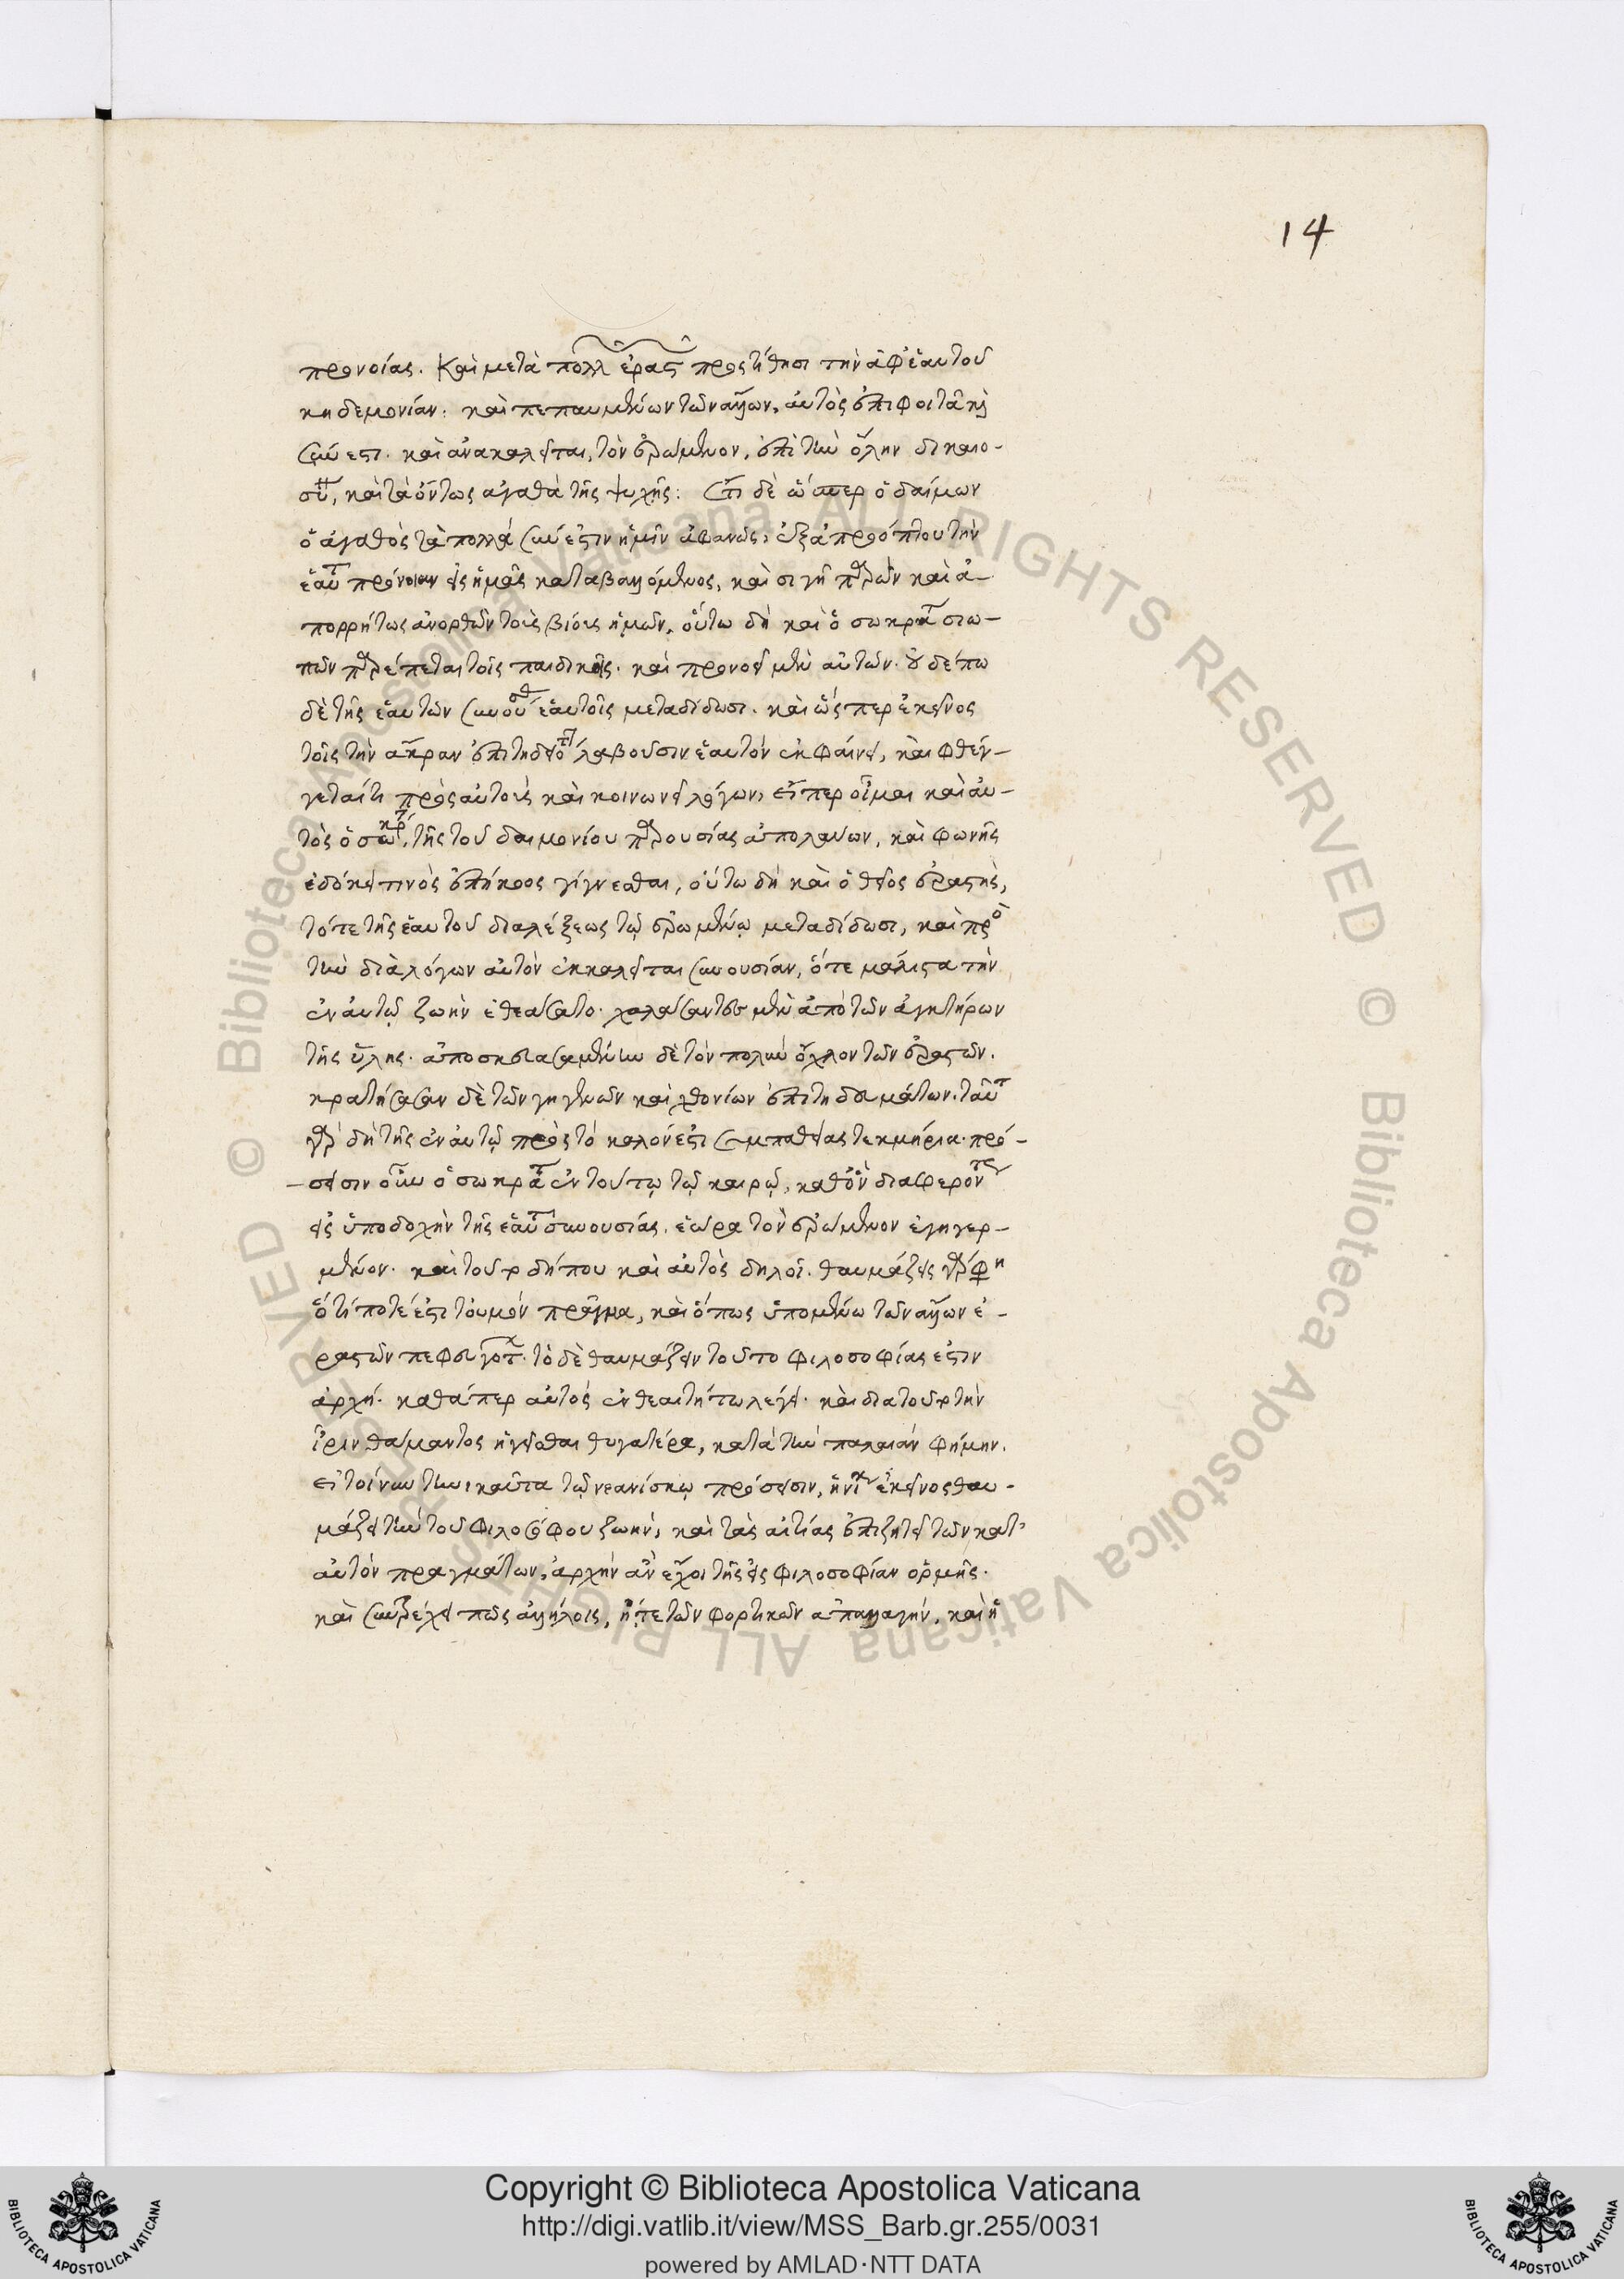 14
προνοίας. Καὶ μετὰ πολλ ἐραστ προστίθησι τὴν ἀφ' ἑαυτοῦ
κηδεμονίαν: καὶ πεπαυμένων τῶν ἄλλων, αὐτὸς ἐπιφοιτᾶ καὶ
σύνεστι. καὶ ἀνακαλεῖται, τὸν ἐρώμενον, ἐπὶ τὴν ὅλην δικαιο-
σύ, καὶ τὰ ὄντως ἀγαθὰ τῆς ψυχῆς: Ἔτι δὲ ὥσπερ ὁ δαίμων
ὁ ἀγαθὸς τὰ πολλά σύνεστιν ἡμῖν ἀφανῶς, ἐξ ἀπροόπτου τὴν
ἑαυτ πρόνοιαν εἰς ἡμᾶς καταβαλλόμενος, καὶ σιγῆ παρὼν καὶ ἀ-
πορρήτως ἀνορθῶν τοὺς βίους ἡμῶν, οὕτω δὴ καὶ ὁ σωκράτ σιω-
πῶν παρέπεται τοῖς παιδικοῖς. καὶ προνοεῖ μὲν αὐτῶν. οὐδέπω
δὲ τῆς ἑαυτῶν συνουσ ἑαυτοῖς μεταδίδωσι. καὶ ὥσπερ ἐκεῖνος
τοῖς τὴν ἄκραν ἐπιτηδειότ λαβοῦσιν ἑαυτὸν ἐκφαίνει, καὶ φθέγ-
γεταί τι πρὸς αὐτοὺς καὶ κοινωνεῖ λόγων, εἴπερ οἶμαι καὶ αὐ-
τὸς ὁ σωκρ, τῆς τοῦ δαιμονίου παρουσίας ἀπολαύων, καὶ φωνῆς
ἐδόκει τινὸς ἐπήκοος γίγνεσθαι, οὕτω δὴ καὶ ὁ θεῖος ἐραστὴς,
τότε τῆς ἑαυτοῦ διαλέξεως τῷ ἐρωμένῳ μεταδίδωσι, καὶ πρὸ
τὴν διὰ λόγων αὐτὸν ἐκκαλεῖται συνουσίαν, ὅτε μάλιστα τὴν
ἐν αὐτῷ ζωὴν ἐθεάσατο. χαλάσαντες μὲν ἀπὸ τῶν ἀγητήρων
τῆς ὕλης. ἀποσκευασαμένην δὲ τὸν πολὺν ὄχλον τῶν ἐραστῶν.
κρατήσασαν δὲ τῶν γηγενῶν καὶ χθονίων ἐπιτηδευμάτων. ταῦτ
γὰρ δὴ τῆς ἐν αὐτῷ πρὸς τὸ καλόν ἐστι συμπαθείας τεκμήρια. πρό-
σεισιν οὖν ὁ σωκράτ ἐν τούτῳ τῷ καιρῷ, καθ' ὃν διαφερόντ
εἰς ὑποδοχὴν τῆς ἑαυτ συνουσίας. ἑώρα τὸν ἐρώμενον ἐγηγερ-
μένον. καὶ τοῦτο δήπου καὶ αὐτὸς δηλοῖ. θαυμάζεις γάρ φη
ὅτί ποτέ ἐστι τοὐμὸν πρᾶγμα, καὶ ὅπως ὑπομένω τῶν ἄλλων ἐ-
ραστῶν πεφευγότ. τὸ δὲ θαυμάζειν τοῦτο φιλοσοφίας ἐστὶν
ἀρχή. καθάπερ αὐτός ἐν θεαιτήτω λέγει. καὶ διὰ τοῦτο τὴν
ἶριν θαύμαντος ἡγεῖσθαι θυγατέρα, κατὰ τὴν παλαιὰν φήμην.
εἰ τοίνυν τηνικαῦτα τῷ νεανίσκῳ πρόσεισιν, ἡνίκ ἐκεῖνος θαυ-
μάζει τὴν τοῦ φιλοσόφου ζωὴν, καὶ τὰς αἰτίας ἐπιζητεῖ τῶν κατ'
αὐτὸν πραγμάτων, ἀρχὴν ἂν ἔχοι τῆς εἰς φιλοσοφίαν ὁρμῆς.
καὶ συντρέχει πῶς ἀλλήλοις, ἥ τε τῶν φορτικῶν ἀπαλλαγὴν, καὶ ἡ
Copyright © Biblioteca Apostolica Vaticana
http://digi.vatlib.it/view/MSS_Barb.gr.255/0031
powered by AMLAD·NTT DATA
BIBLIOTECA APOSTOLICA VATICANA
BIBLIOTECA APOSTOLICA VATICANA
© Biblioteca Apostolica Vaticana ALL RIGHTS RESERVED © Biblioteca Apostolica Vaticana ALL RIGHTS RESERVED